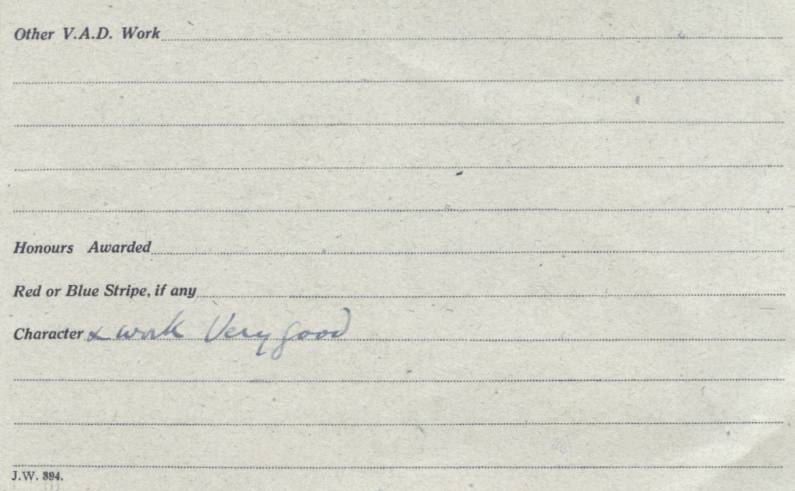 Other V.A.D. Work
Honours Awarded
Red or Blue Stripe, if any
Character & work Very good
J.W. 894.